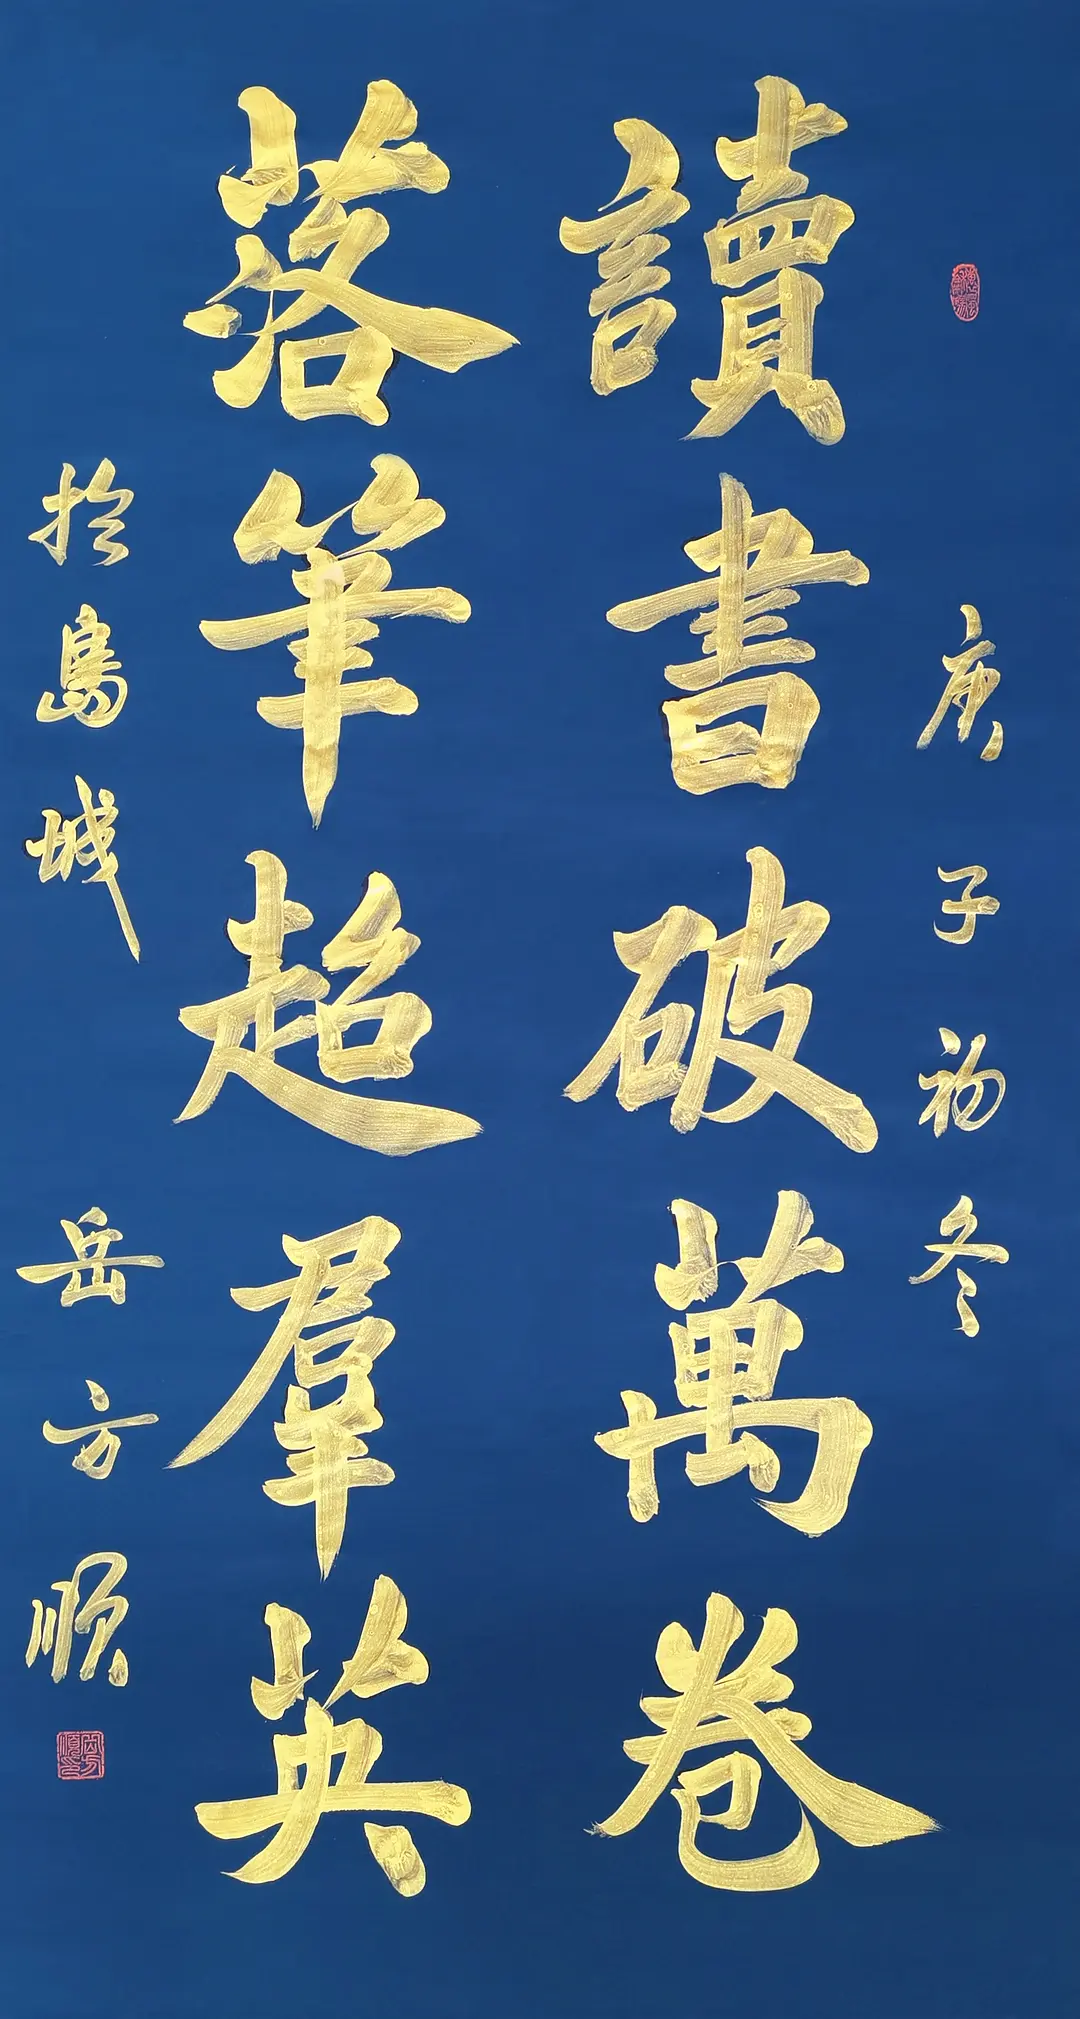 讀書破萬卷
落筆超羣英
庚子初冬
於島城 岳方順